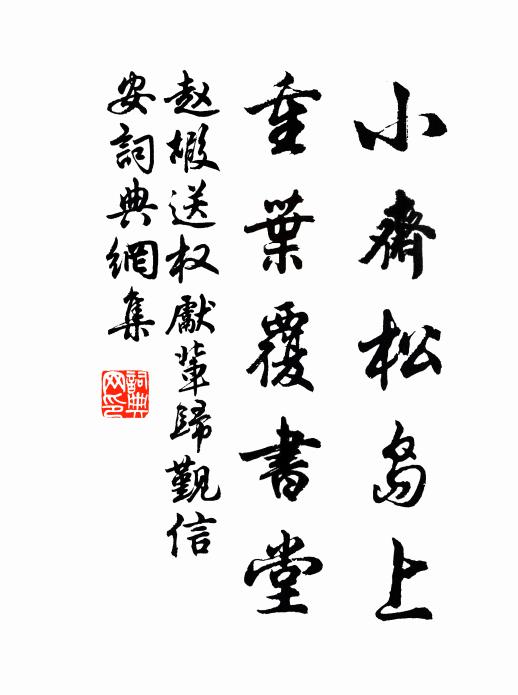 小齋松島上
重葉覆書堂
赵嘏送权獻輩歸觐信
安詞典網集
詞典网印